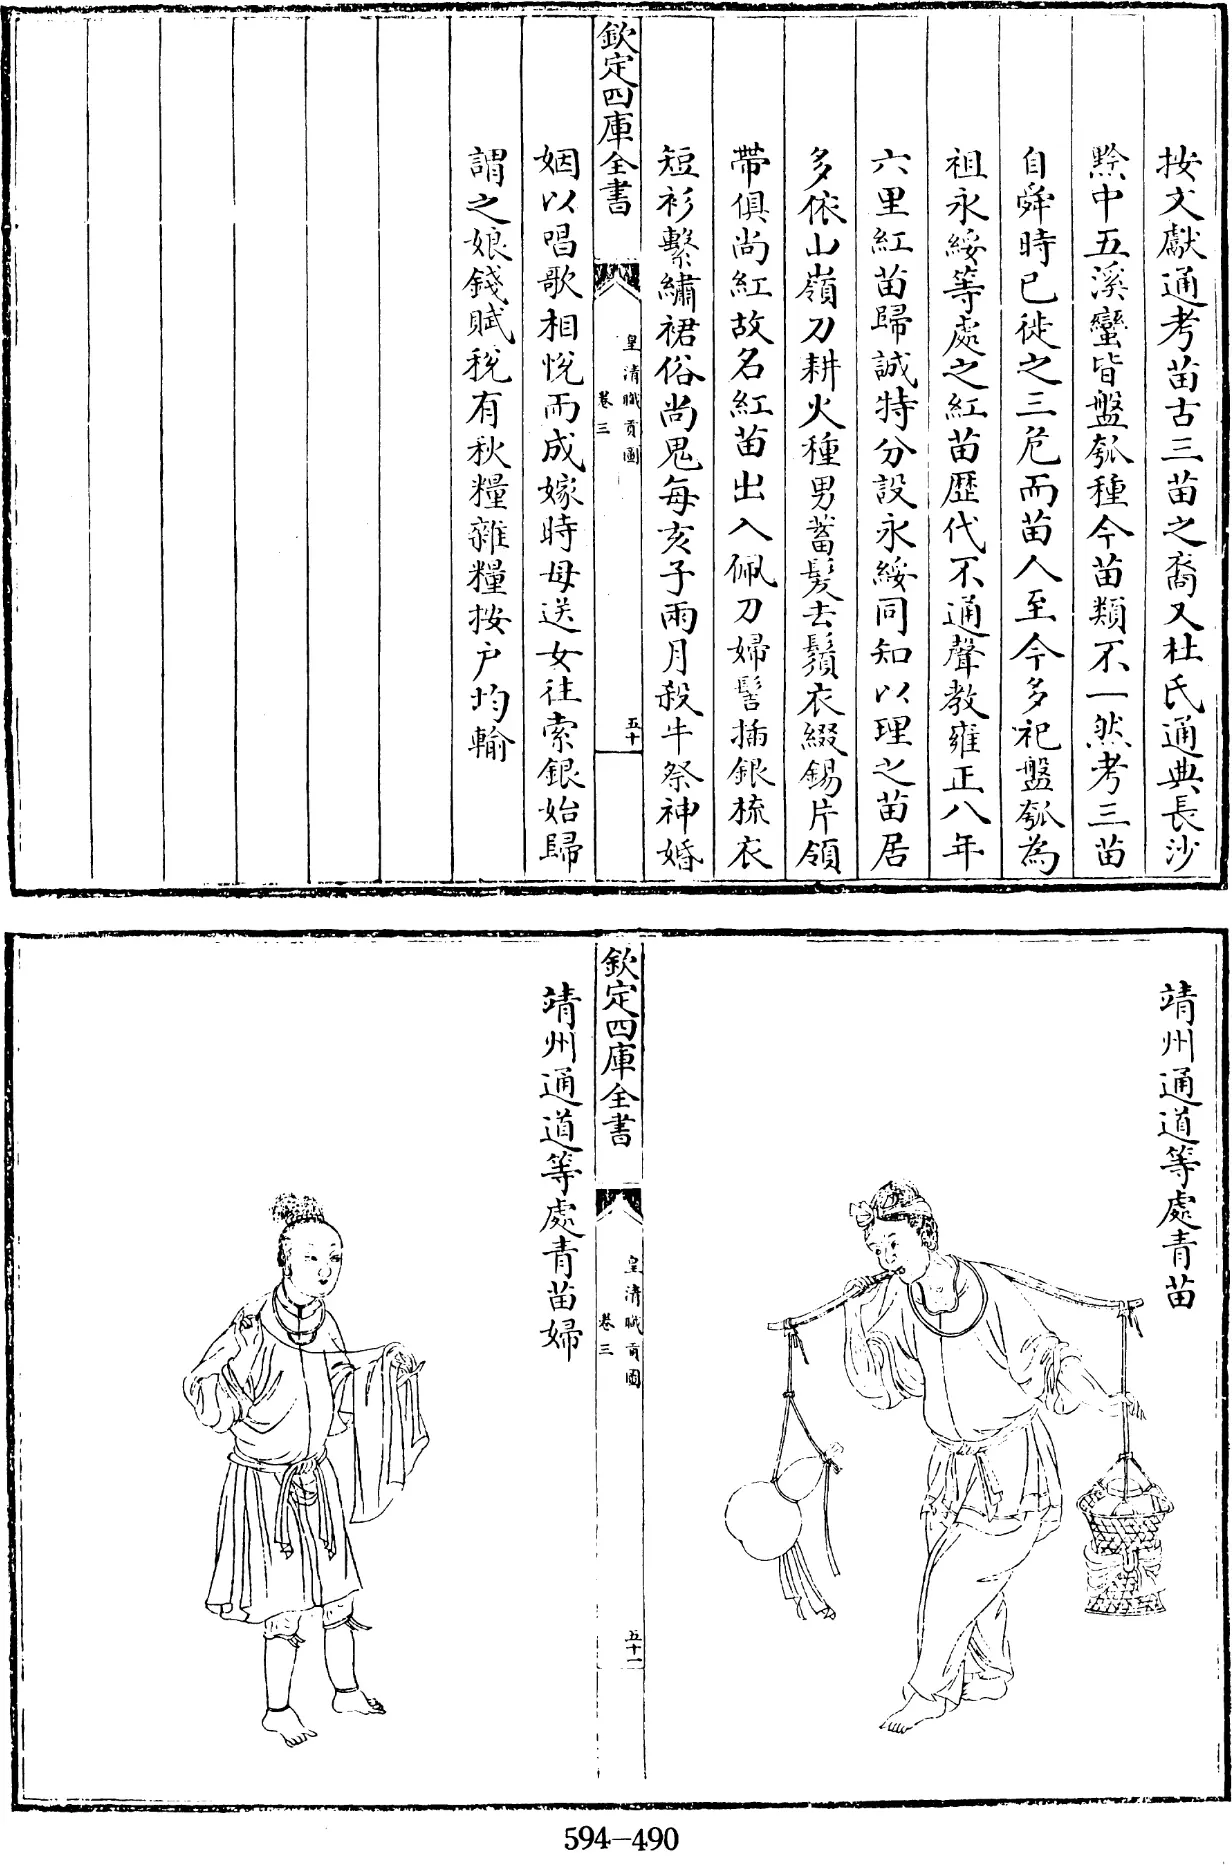 按文獻通考苗古三苗之裔又杜氏通典長沙
黔中五溪蠻皆盤瓠種今苗類不一然考三苗
自舜時已徙之三危而苗人至今多祀盤瓠為
祖永綏等處之紅苗歷代不通聲教雍正八年
六里紅苗歸誠特分設永綏同知以理之苗居
多依山嶺刀耕火種男蓄髮去鬚衣綴錫片領
帶俱尚紅故名紅苗出入佩刀婦髻插銀梳衣
短衫繫繡裙俗尚鬼每亥子兩月殺牛祭神婚
欽定四庫全書
皇清職貢圖
卷三
五十
姻以唱歌相悅而成嫁時母送女往索銀始歸
謂之娘錢賦稅有秋糧雜糧按户均輸
靖州通道等處青苗
欽定四庫全書
皇清職貢圖
卷三
五十一
靖州通道等處青苗婦
594-490